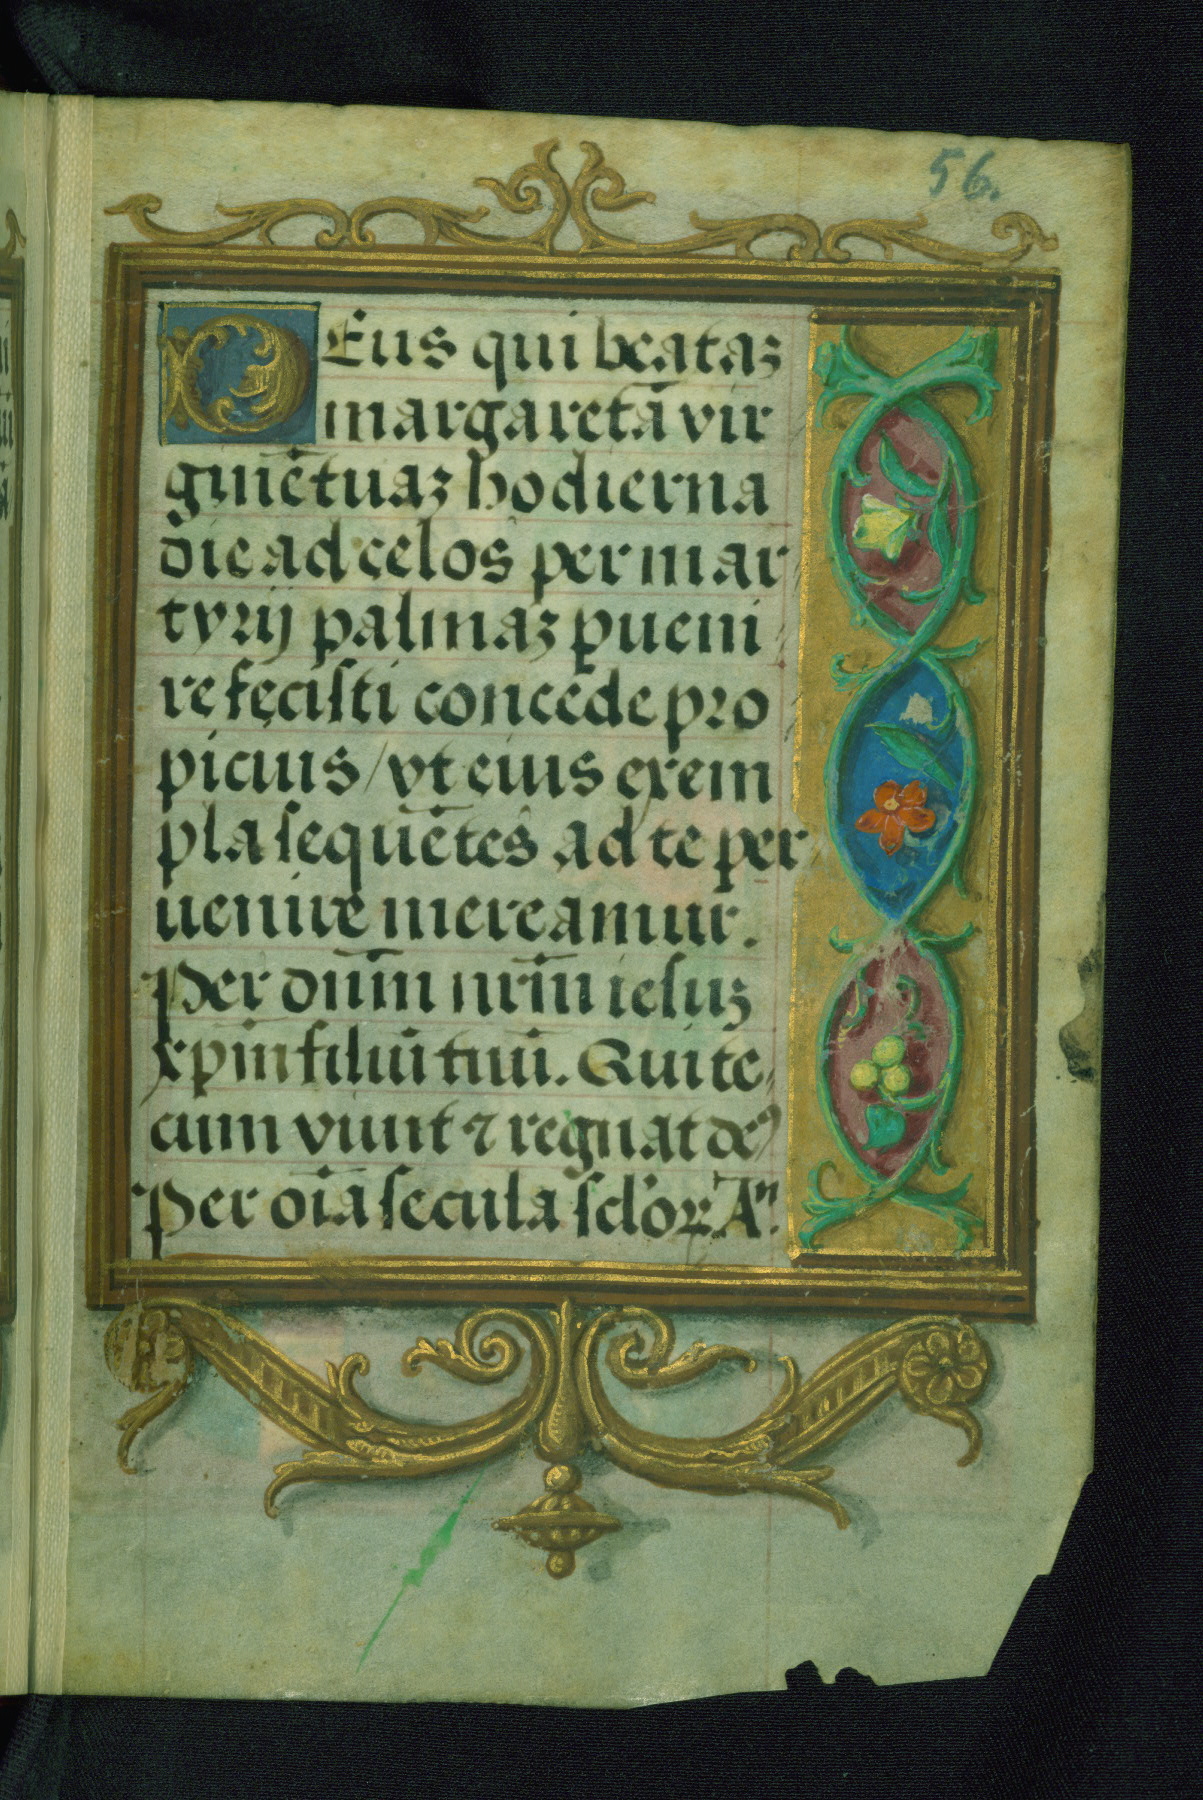 56.
DEus qui beataʒ
margaretā vir
ginē tuaʒ hodierna
die ad celos per mar
tyrij palmaʒ ꝑueni
re fecisti concede pro
picius / vt eius exem
pla sequētes ad te per
uenire mereamur.
Per dn̄m nr̄m iesuʒ
xp̄m filiū tuū. Qui te
cum viuit ⁊ regnat deꝰ
Per oīa secula scl'oꝝ Aⁿ.